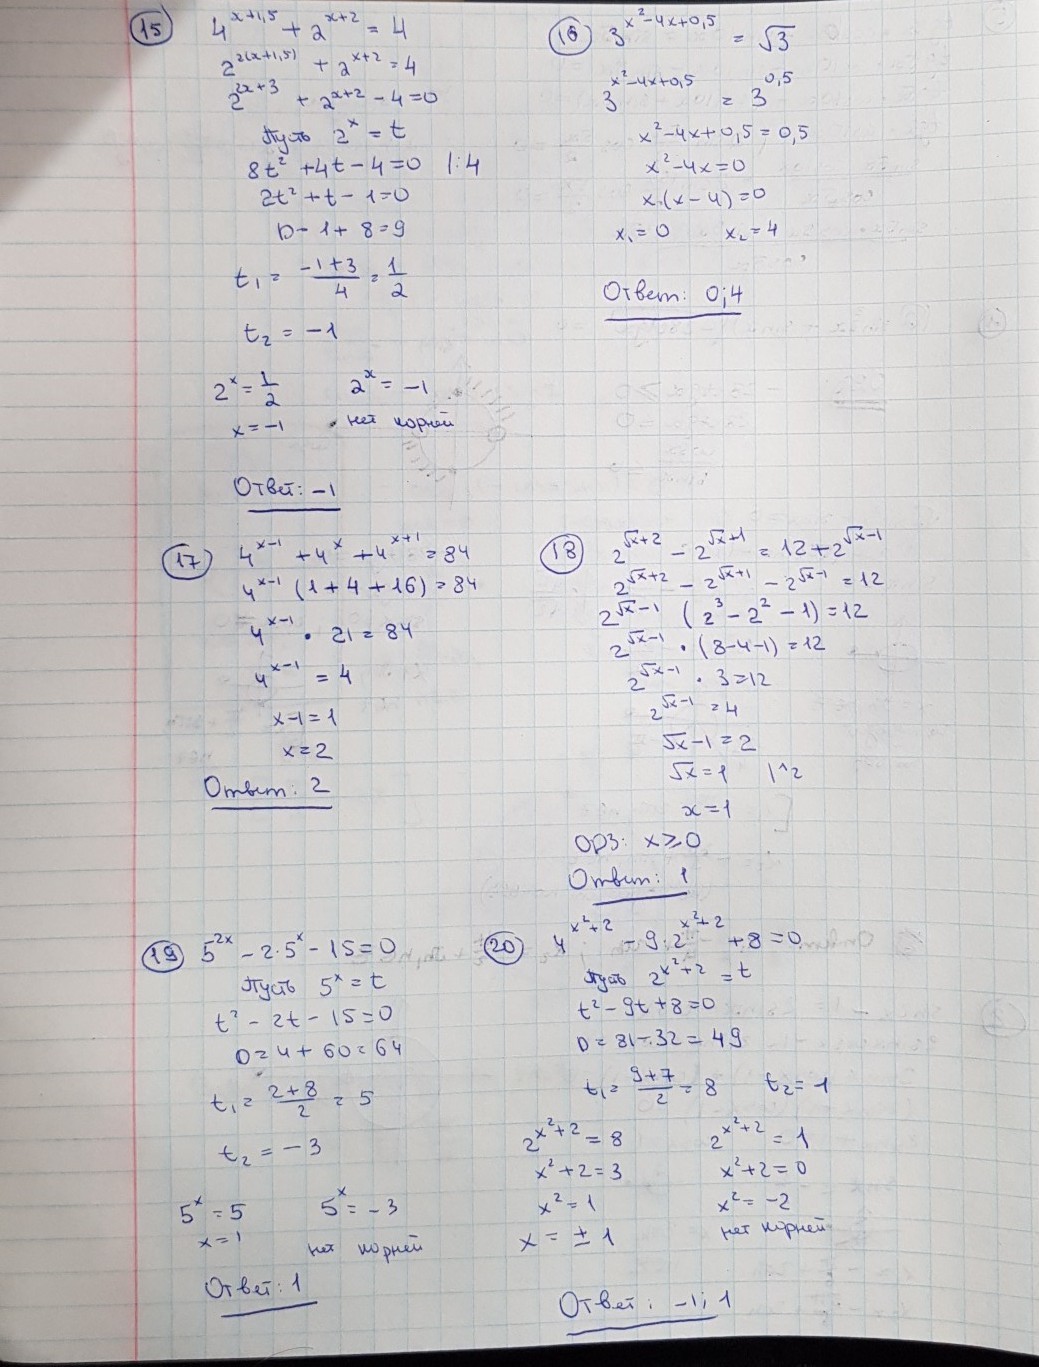 15) 4^(x+1,5) + 2^(x+2) = 4
2^(2(x+1,5)) + 2^(x+2) = 4
2^(2x+3) + 2^(x+2) - 4 = 0
Пусть 2^x = t
8t² + 4t - 4 = 0 |:4
2t² + t - 1 = 0
D - 1 + 8 = 9
t₁ = (-1+3)/4 = 1/2
t₂ = -1
2^x = 1/2 2^x = -1
x = -1 нет корней
Ответ: -1
16) 3^(x²-4x+0,5) = √3
3^(x²-4x+0,5) = 3^(0,5)
x² - 4x + 0,5 = 0,5
x² - 4x = 0
x·(x - 4) = 0
x₁ = 0 x₂ = 4
Ответ: 0;4
17) 4^(x-1) + 4^x + 4^(x+1) = 84
4^(x-1) (1 + 4 + 16) = 84
4^(x-1) · 21 = 84
4^(x-1) = 4
x-1 = 1
x = 2
Ответ: 2
18) 2^(√x+2) - 2^(√x+1) = 12 + 2^(√x-1)
2^(√x+2) - 2^(√x+1) - 2^(√x-1) = 12
2^(√x-1) (2³ - 2² - 1) = 12
2^(√x-1) · (8-4-1) = 12
2^(√x-1) · 3 = 12
2^(√x-1) = 4
√x - 1 = 2
√x = 1 |^2
x = 1
ОДЗ: x ≥ 0
Ответ: 1
19) 5^(2x) - 2·5^x - 15 = 0
Пусть 5^x = t
t² - 2t - 15 = 0
D = 4 + 60 = 64
t₁ = (2+8)/2 = 5
t₂ = -3
5^x = 5 5^x = -3
x = 1 нет корней
Ответ: 1
20) 4^(x²+2) - 9·2^(x²+2) + 8 = 0
Пусть 2^(x²+2) = t
t² - 9t + 8 = 0
D = 81 - 32 = 49
t₁ = (9+7)/2 = 8 t₂ = 1
2^(x²+2) = 8 2^(x²+2) = 1
x² + 2 = 3 x² + 2 = 0
x² = 1 x² = -2
x = ±1 нет корней
Ответ: -1; 1